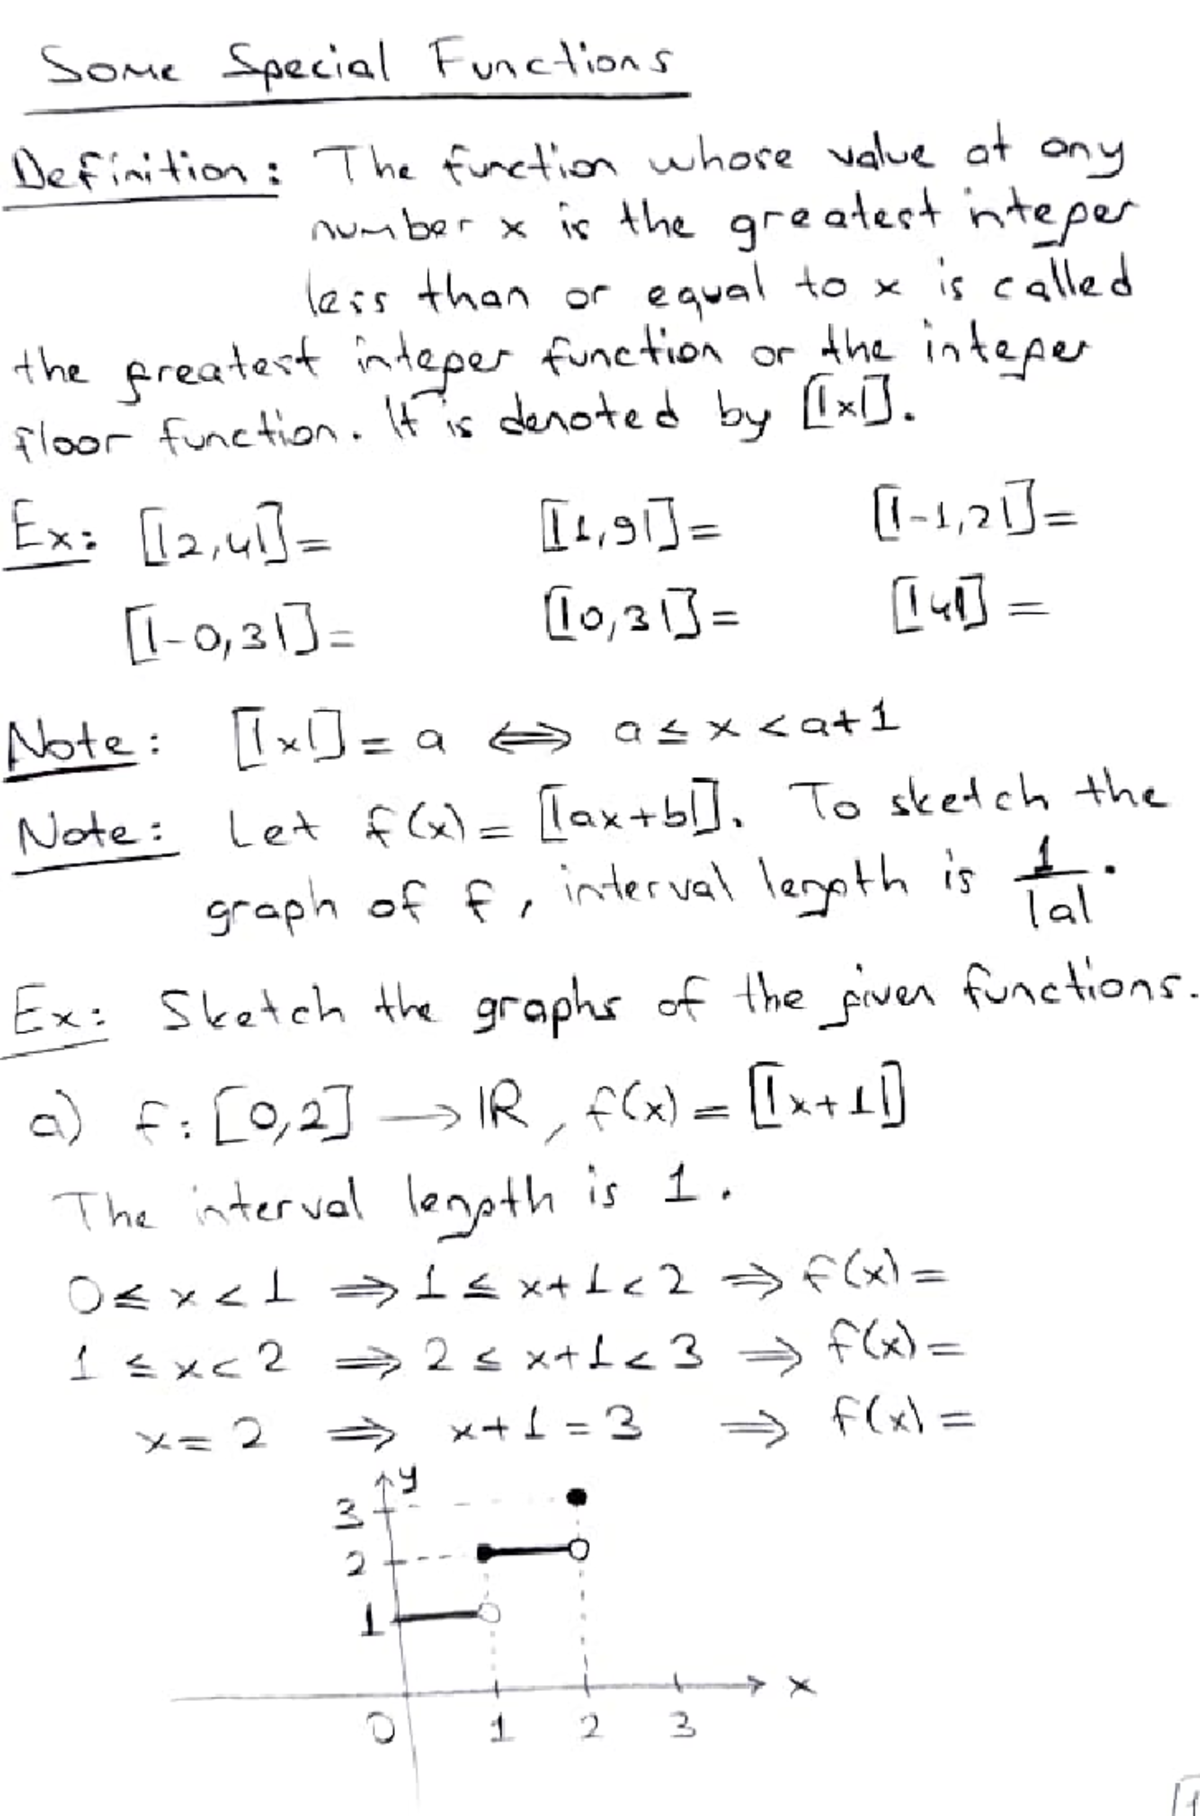 Some Special Functions
Definition: The function whose value at any
number x is the greatest integer
less than or equal to x is called
the greatest integer function or the integer
floor function. It is denoted by [|x|].
Ex: [|2,4|]= [|1,9|]= [|-1,2|]=
[|-0,3|]= [|0,3|]= [|4|]=
Note: [|x|]=a ⟺ a≤x<a+1
Note: Let f(x)=[|ax+b|]. To sketch the
graph of f, interval length is 1/|a|.
Ex: Sketch the graphs of the given functions.
a) f:[0,2] → ℝ, f(x)=[|x+1|]
The interval length is 1.
0≤x<1 ⟹ 1≤x+1<2 ⟹ f(x)=
1≤x<2 ⟹ 2≤x+1<3 ⟹ f(x)=
x=2 ⟹ x+1=3 ⟹ f(x)=
y
3
2
1
x
0 1 2 3